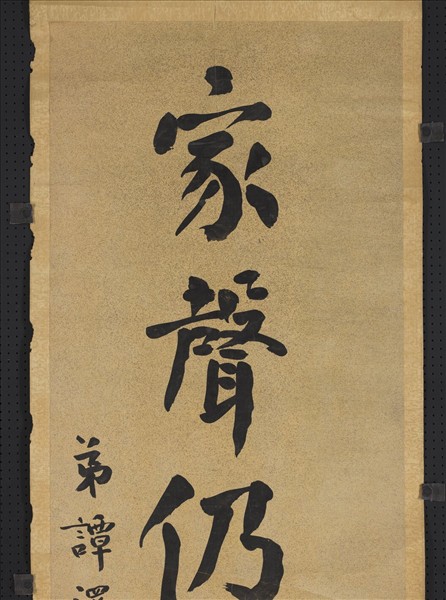 家聲仍
弟譚澤